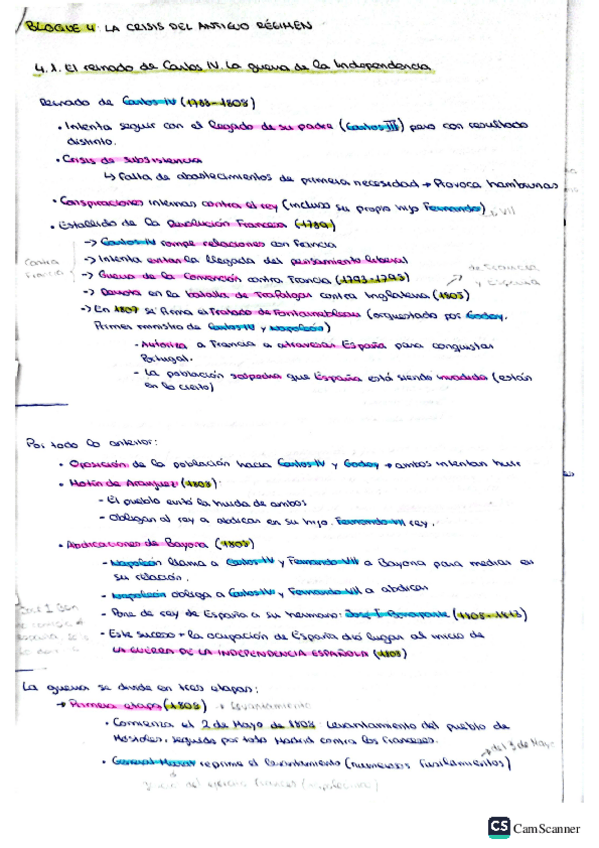 BLOQUE 4: LA CRISIS DEL ANTIGUO RÉGIMEN
4.1. El reinado de Carlos IV. La guerra de la Independencia
Reinado de Carlos IV (1788-1808)
• Intenta seguir con el legado de su padre (Carlos III) pero con resultado
distinto.
• Crisis de subsistencia
↳ Falta de abastecimientos de primera necesidad → Provoca hambrunas
• Conspiraciones internas contra el rey (incluso su propio hijo Fernando)
VII
• Estallido de la Revolución Francesa (1789)
-> Carlos IV rompe relaciones con Francia
-> Intenta evitar la llegada del pensamiento liberal
Contra
Francia
-> Guerra de la Convención contra Francia (1793-1795)
-> Derrota en la batalla de Trafalgar contra Inglaterra (1805)
y España
-> En 1807 se firma el Tratado de Fontainebleau (orquestado por Godoy,
Primer ministro de Carlos IV y Napoleón)
- Autoriza a Francia a atravesar España para conquistar
Portugal.
- La población sospecha que España está siendo invadida (están
en lo cierto)
Por todo lo anterior:
• Oposición de la población hacia Carlos IV y Godoy → ambos intentan huir
• Motín de Aranjuez (1808)
- El pueblo evitó la huida de ambos
- Obligan al rey a abdicar en su hijo. Fernando VII rey.
• Abdicaciones de Bayona (1808)
- Napoleón llama a Carlos IV y Fernando VII a Bayona para mediar en
su relación.
- Napoleón obliga a Carlos IV y Fernando VII a abdicar
- Pone de rey de España a su hermano: José I Bonaparte (1808-1813)
- Este suceso + la ocupación de España dió lugar al inicio de
LA GUERRA DE LA INDEPENDENCIA ESPAÑOLA (1808)
La guerra se divide en tres etapas:
→ Primera etapa (1808) → Levantamiento
• Comienza el 2 de Mayo de 1808: Levantamiento del pueblo de
Móstoles, seguido por toda Madrid contra los franceses.
del 3 de Mayo
• General Murat reprime el levantamiento (numerosos fusilamientos)
del ejército francés
CS CamScanner